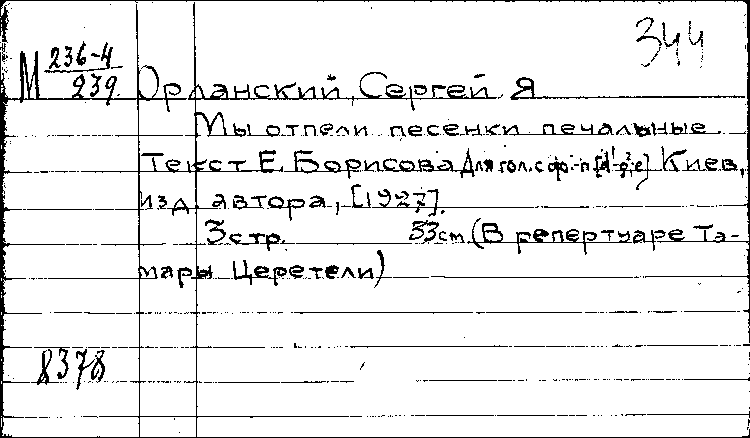 344
М 236-4
239.
Орланский, Сергей Я
Мы отпели песенки печальные.
Текст Е. Борисова Для гол. с ф.-п [d¹-g²,e] Киев,
изд. автора, [1927].
3 стр. 33 см. (В репертуаре Та-
мары Церетели)
8378